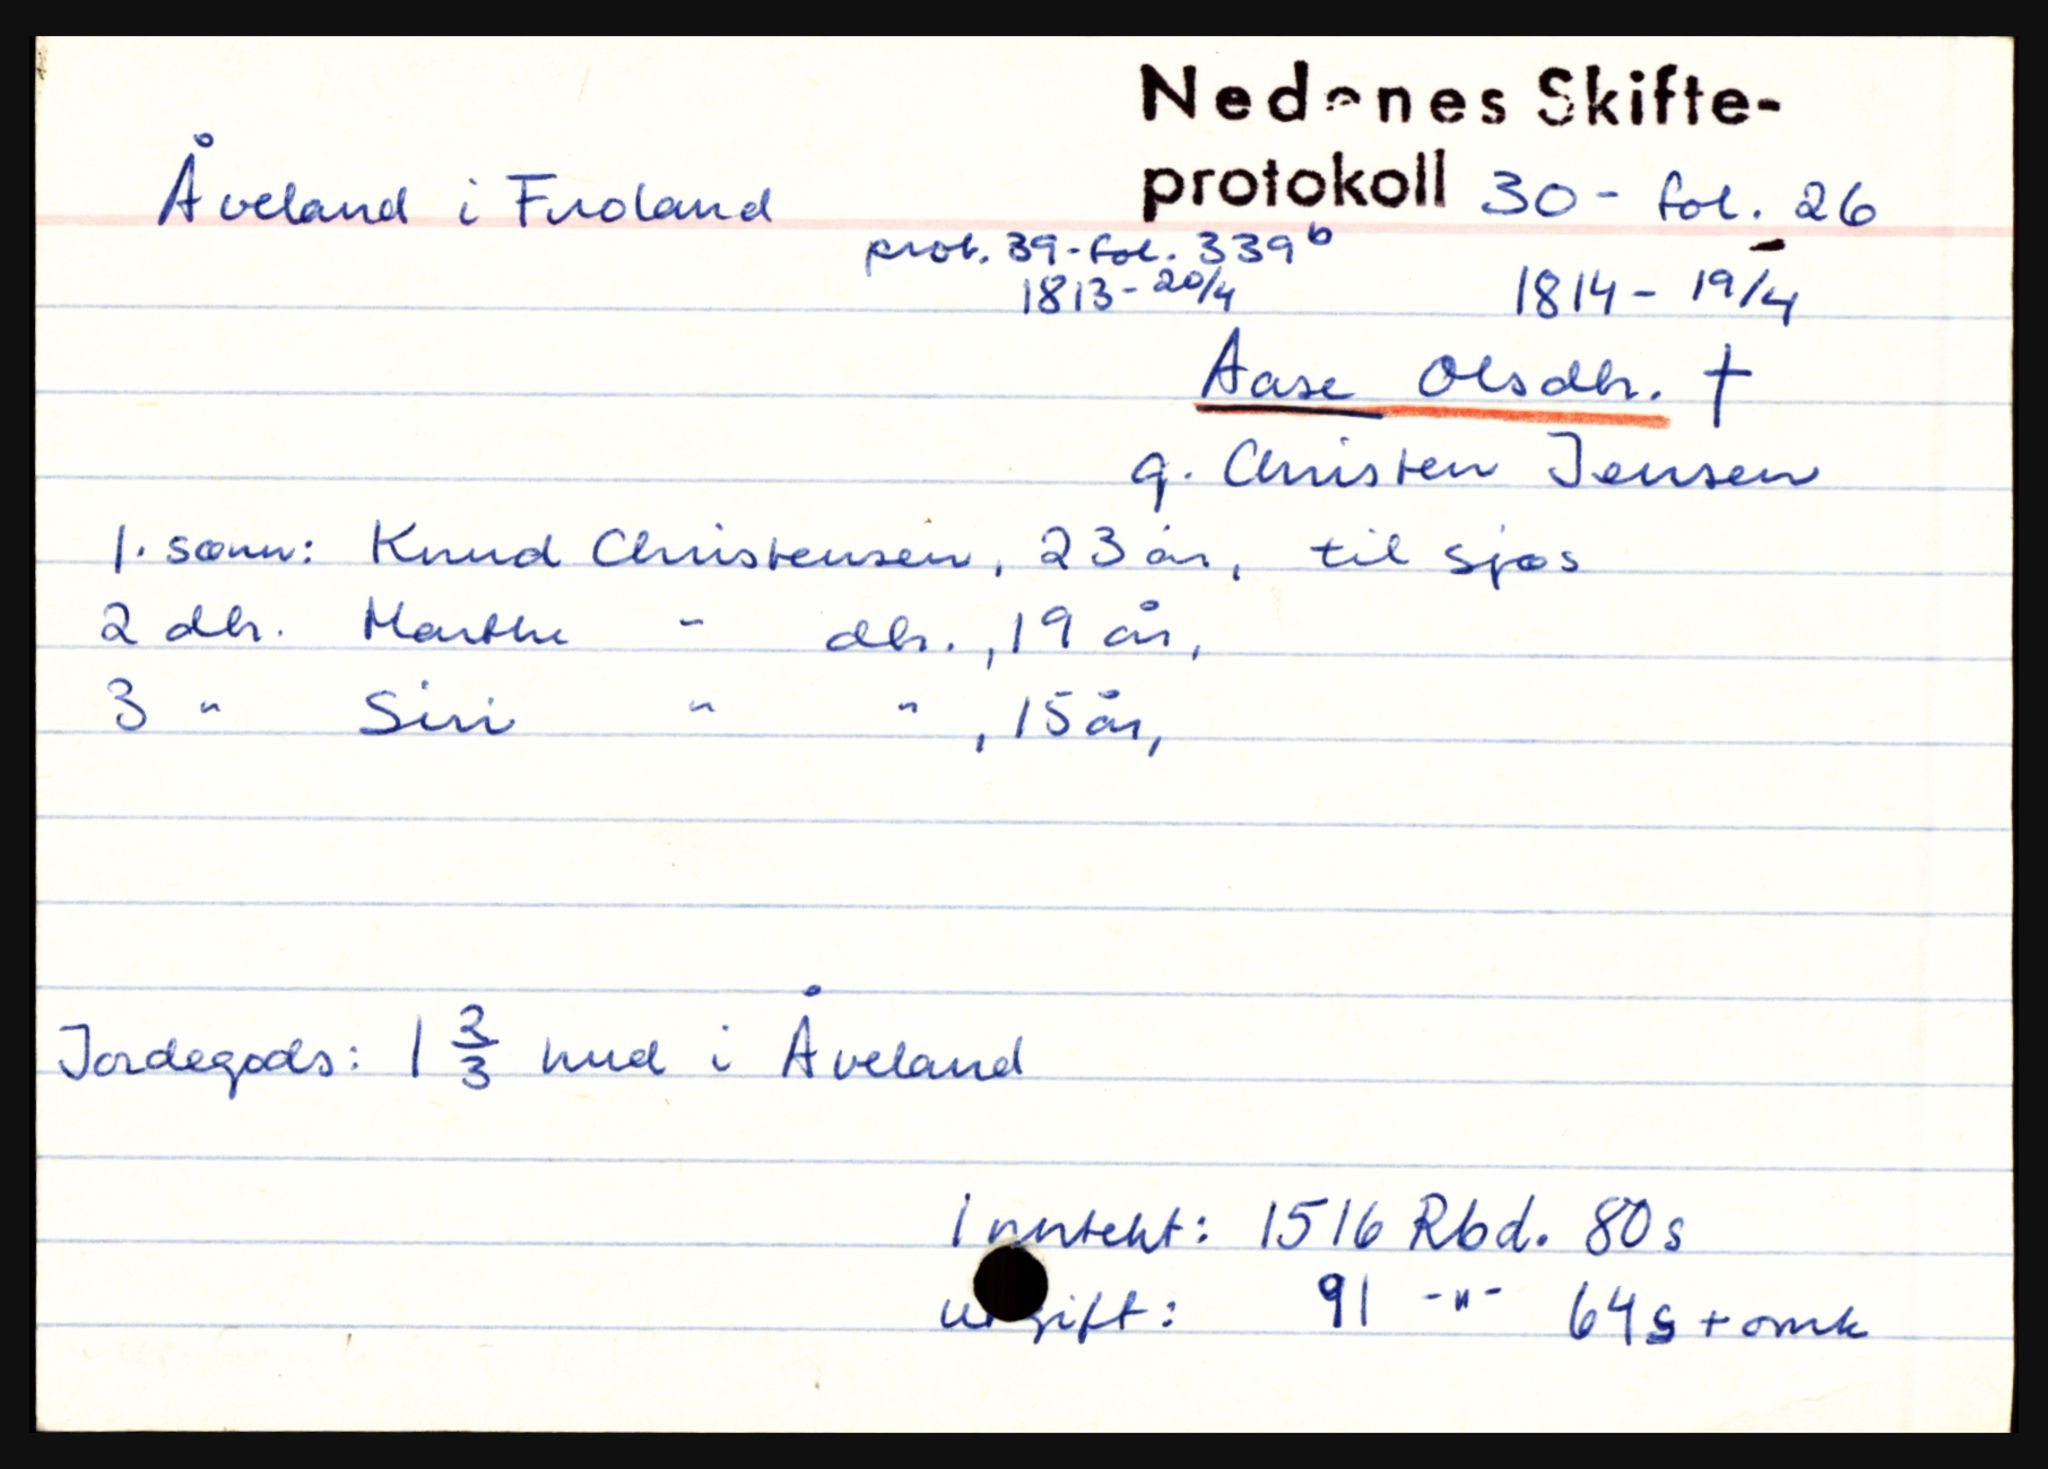 Nedenes Skifte-
Åveland i Froland protokoll 30 - fol. 26
prot. 39 - fol. 339b
1813 - 20/4 1814 - 19/4
Aase Olsdtr. †
g. Christen Jensen
1. sønn: Knud Christensen, 23 år, til sjøs
2 dtr. Marthe " dtr., 19 år,
3 " Siri " " , 15 år,
Jordegods: 1 2/3 hud i Åveland
Inntekt: 1516 Rbd. 80 s
Utgift: 91 -"- 64 s + omk